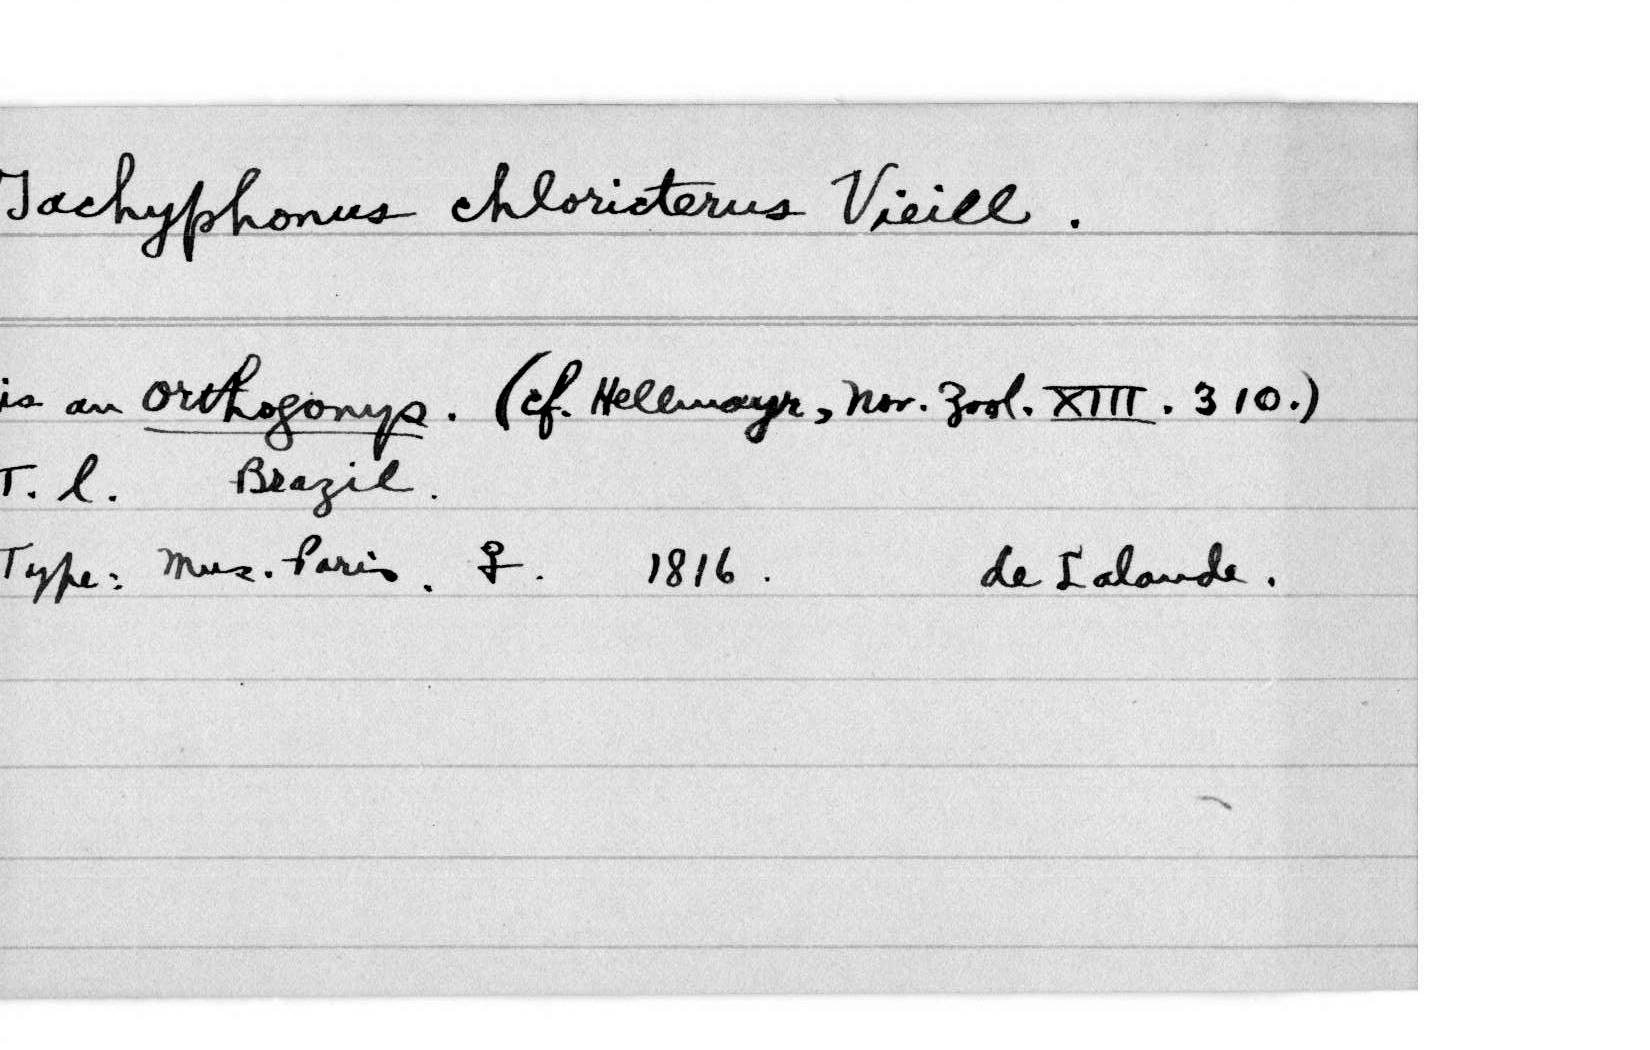 Tachyphonus chloricterus Vieill.
is an Orthogonys. (cf. Hellmayr, Nov. Zool. XIII. 310.)
T. l. Brazil.
Type: Mus. Paris. ♀. 1816. de Lalande.